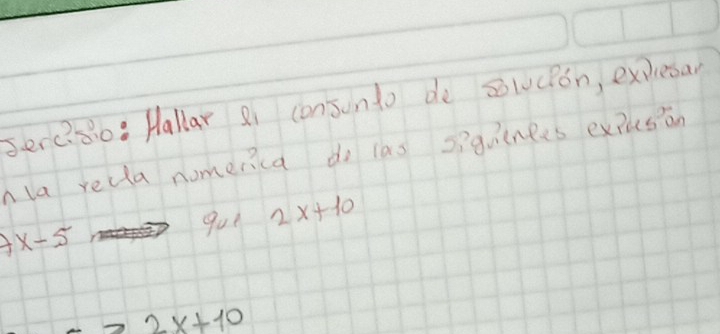 Jercisio: Hallar El consunto de solución, expresar
n la recta numerica de las siguientes expresión
7x-5 que 2x+10
> 2x+10